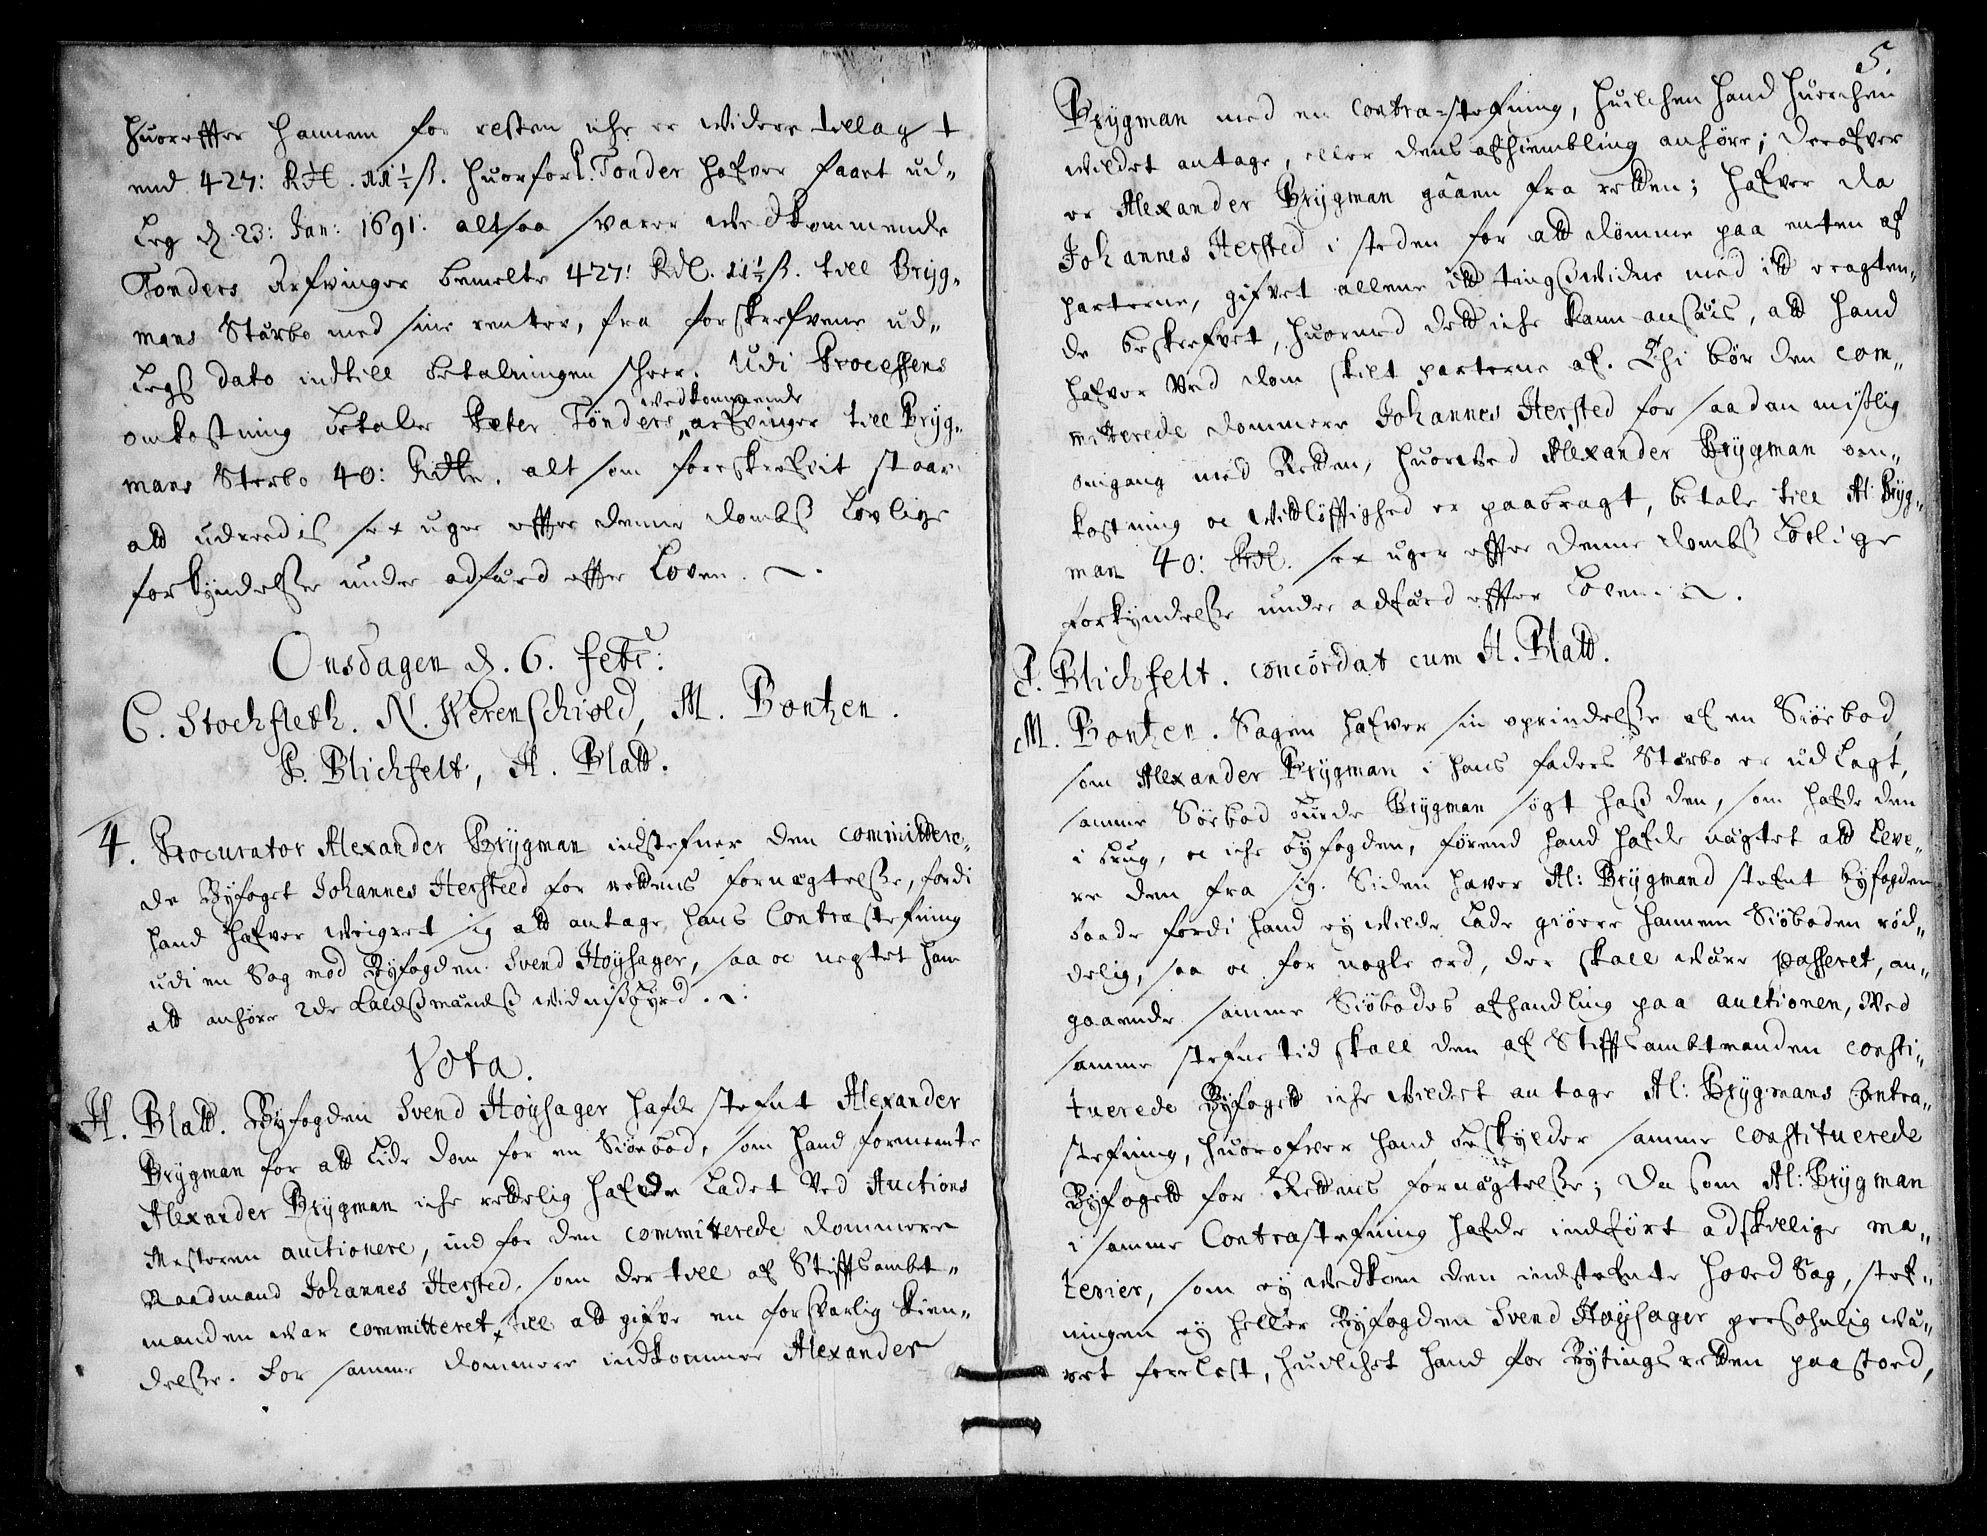 huoreffter hannem for resten iche er videre tillagt
end 427: Rdl. 11½ ß. huorfor P. Tonder hafver faaet ud-
leg d. 23: Jan: 1691. altsaa svarer vedkommende
Tonders Arfvinger bemelte 427: Rdl. 11½ ß. till Bryg-
mans Stærbo med sine renter, fra forskrefvene ud-
legs dato indtill betalningen scheer. Udi Processens
omkostning betaler Peter Tønders vedkommende arfvinger till Bryg-
mans Sterbo 40: Rdlr. alt som foreskrefvit staar
att udreedis sex uger effter denne dombs Lovlige
forkyndelsse under adfærd effter Loven.
Onsdagen d. 6. Febr:
C. Stochfleth. N. Werenschiold, M. Bontzen.
P. Blichfelt, H. Blatt.
4. Procurator Alexander Brygman indstefner den committere-
de Byfoget Johannes Hersteed for rettens fornægtelsse, fordi
hand hafver veigret sig att antage hans Contrastefning
udi en Sag mod Byfogden Svend Høysager, saa oc negtet ham
att anhøre 2de Kaldsmænds vidnisbyrd.
Vota.
H. Blatt. Byfogden Svend Høysager hafde stefnt Alexander
Brygman for att lide dom for en Siøebod, som hand formeente
Alexander Brygman iche rettelig hafde Ladet ved Auctions
Mesteren auctionere, ind for den committerede dommere
Raadmand Johannes Hersted, som der till af Stifftsambt-
manden var committeret, till att gifve en forsvarlig kien-
delsse. For samme dommere indkommer Alexander
5.
Brygman med en contra-stefning, huilchen hand huerchen
vildet antage, eller dens afhiembling anhøre; derofver
er Alexander Brygman gaaen fra retten; hafver da
Johannes Hersted i steden for att dømme paa enten af
parterne, gifvet allene itt tingsvidne med itt eragten-
de beskrefvet, huormed dett iche kann ansees, att hand
hafver ved dom skilt parterne af. Thi bør den com-
mitterede dommere Johannes Hersted for saadan mislig
omgang med Retten, huorved Alexander Brygman om-
kostning oc vitløfftighed er paabragt, betale till Al: Bryg-
man 40: Rdl. sex uger effter denne dombs Lovlige
forkyndelsse under adfærd effter Loven.
P. Blichfelt. concordat cum H. Blatt.
M. Bontzen. Sagen hafver sin oprindelsse af en Siøebod,
som Alexander Brygman i hans faders Stærbo er udlagt,
samme Søebod burde Brygman søgt hos den, som hafde den
i brug, oc iche byfogden, førend hand hafde nægtet att leve-
re den fra sig. Siden haver Al: Brygmand stefnt byfogden
baade fordi hand ey vilde lade giøre hannem Siøboden rød-
delig, saa oc for nogle ord, der skall være passeret, an-
gaaende samme Siøbodes afhandling paa auctionen, Ved
samme stefnetid skall den af Stifftsambtmanden consti-
tuerede Byfogett iche vildet antage Al: Brygmans Contra-
stefning, huorofver hand beskylder samme constituerede
Byfogett for Rettens fornægtelsse; Da som Al: Brygman
i samme Contrastefning hafde indført adskillige ma-
terier, som ey vedkom den indstefnte hoved Sag, stef-
ningen ey heller Byfogden Svend Høysager persohnlig væ-
ret forelest, huilchet hand for Bytingsretten paastoed,